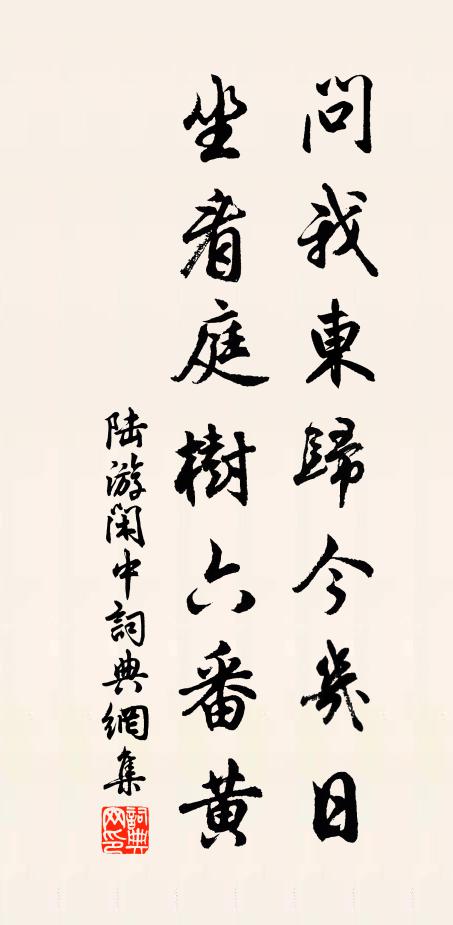 問我東歸今幾日
坐看庭樹六番黄
陸游閑中詞典網集
詞典網印